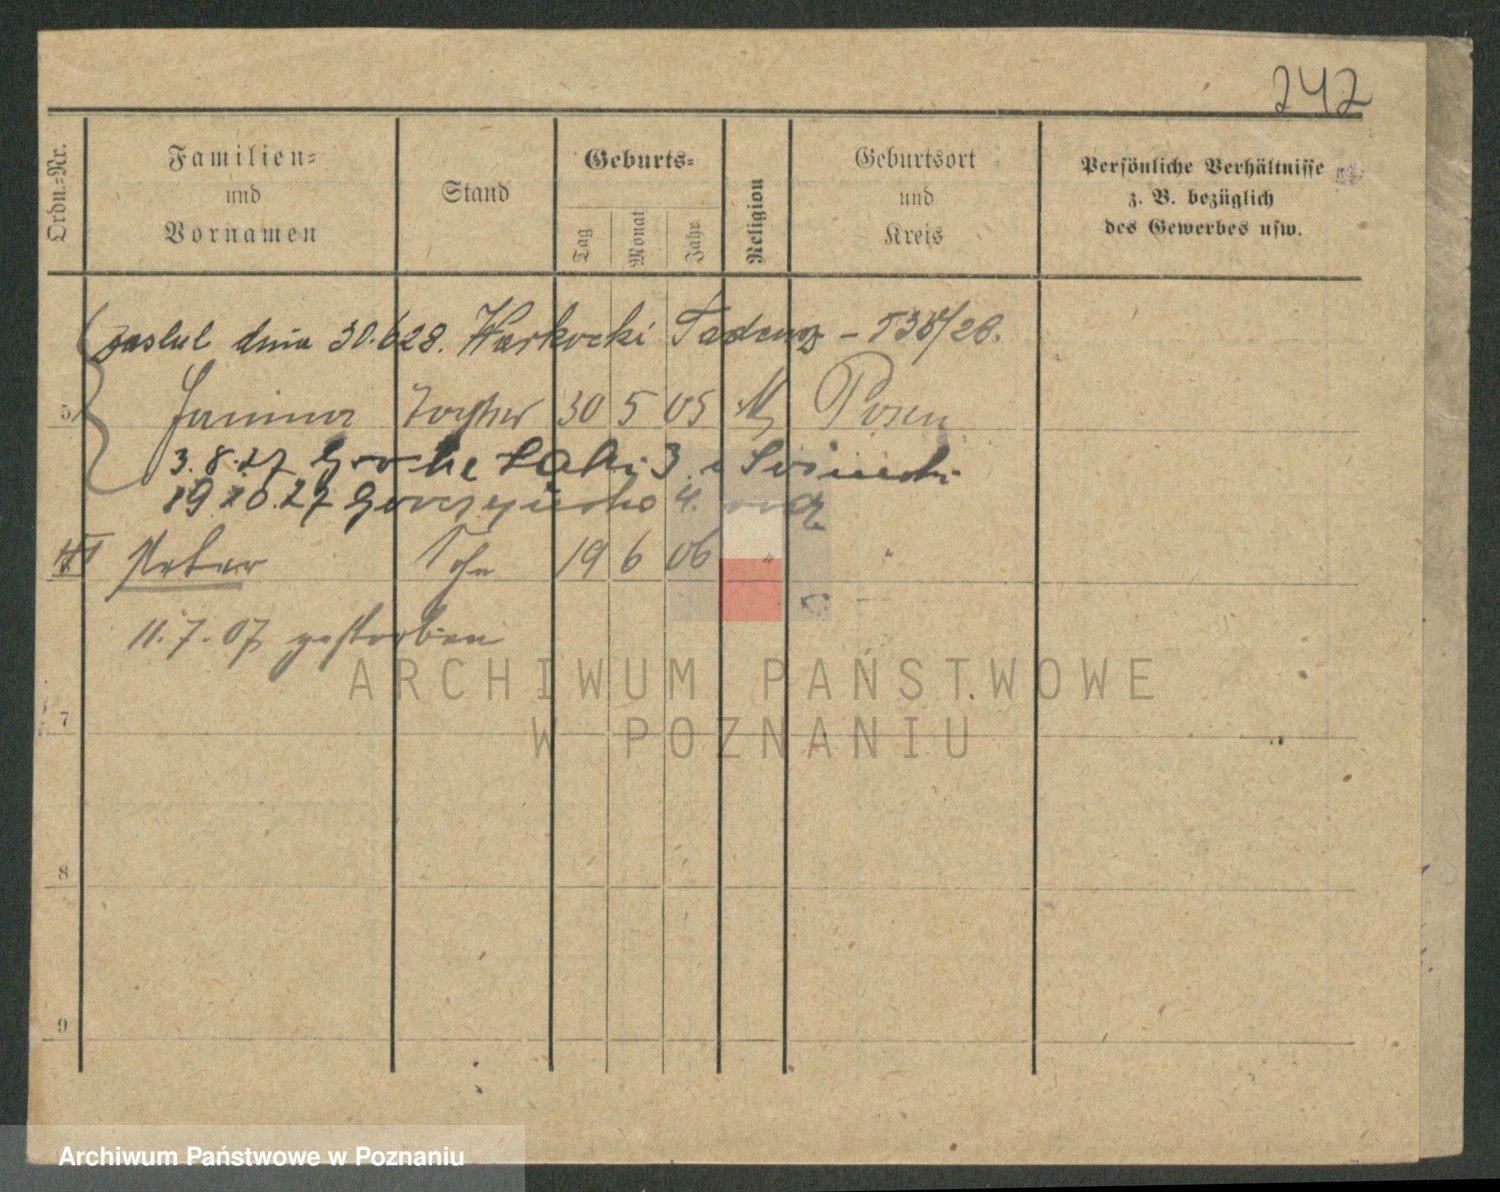 242
Ordn.-Nr.
Familien-
und
Vornamen
Stand
Geburts-
Tag
Monat
Jahr
Religion
Geburtsort
und
Kreis
Persönliche Verhältnisse
z. B. bezüglich
des Gewerbes usw.
zaślub dnia 30.6.28. Warkocki Tadeusz - 538/28.
5 Janina Tochter 30 5 05 Posen
3.8.27 Groche Łąki 3
19 10.27 4.
Peter Sohn 19 6 06 " "
11.7.07 gestorben
7
8
9
ARCHIWUM PAŃSTWOWE
W POZNANIU
Archiwum Państwowe w Poznaniu